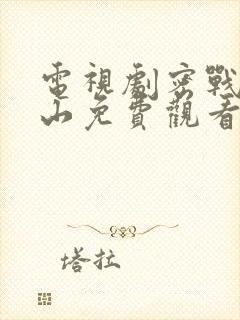 電視劇密戰
山免費觀看
塔拉